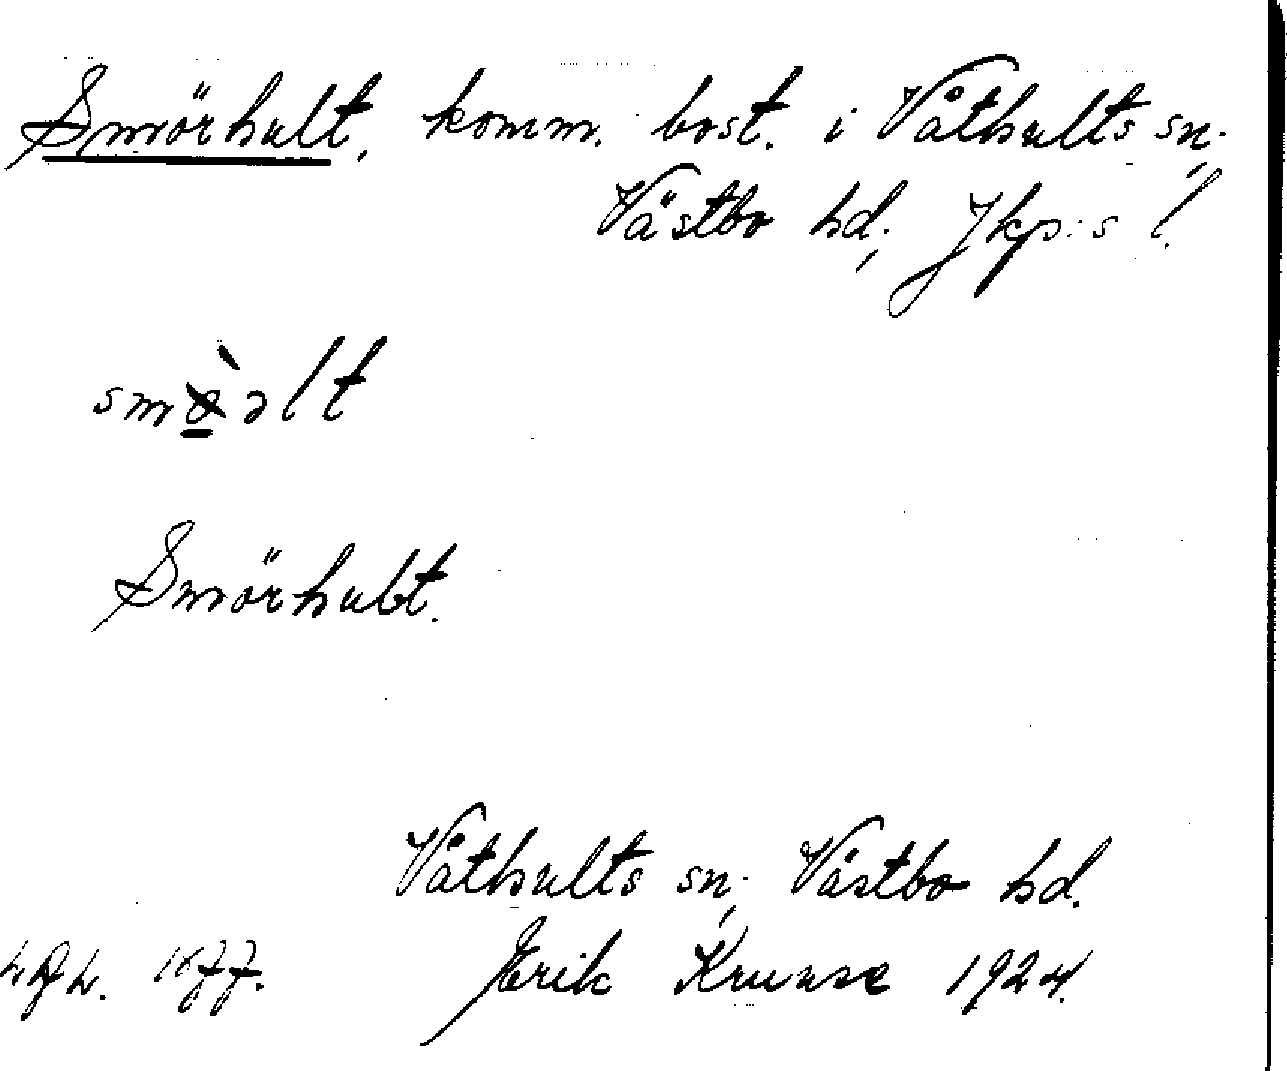 Smörhult, komm. bost. i Våthults sn.,
Västbo hd., Jkp:s l.
Smörhult.
Våthults sn., Västbo hd.
1677. Erik Kruuse 1924.